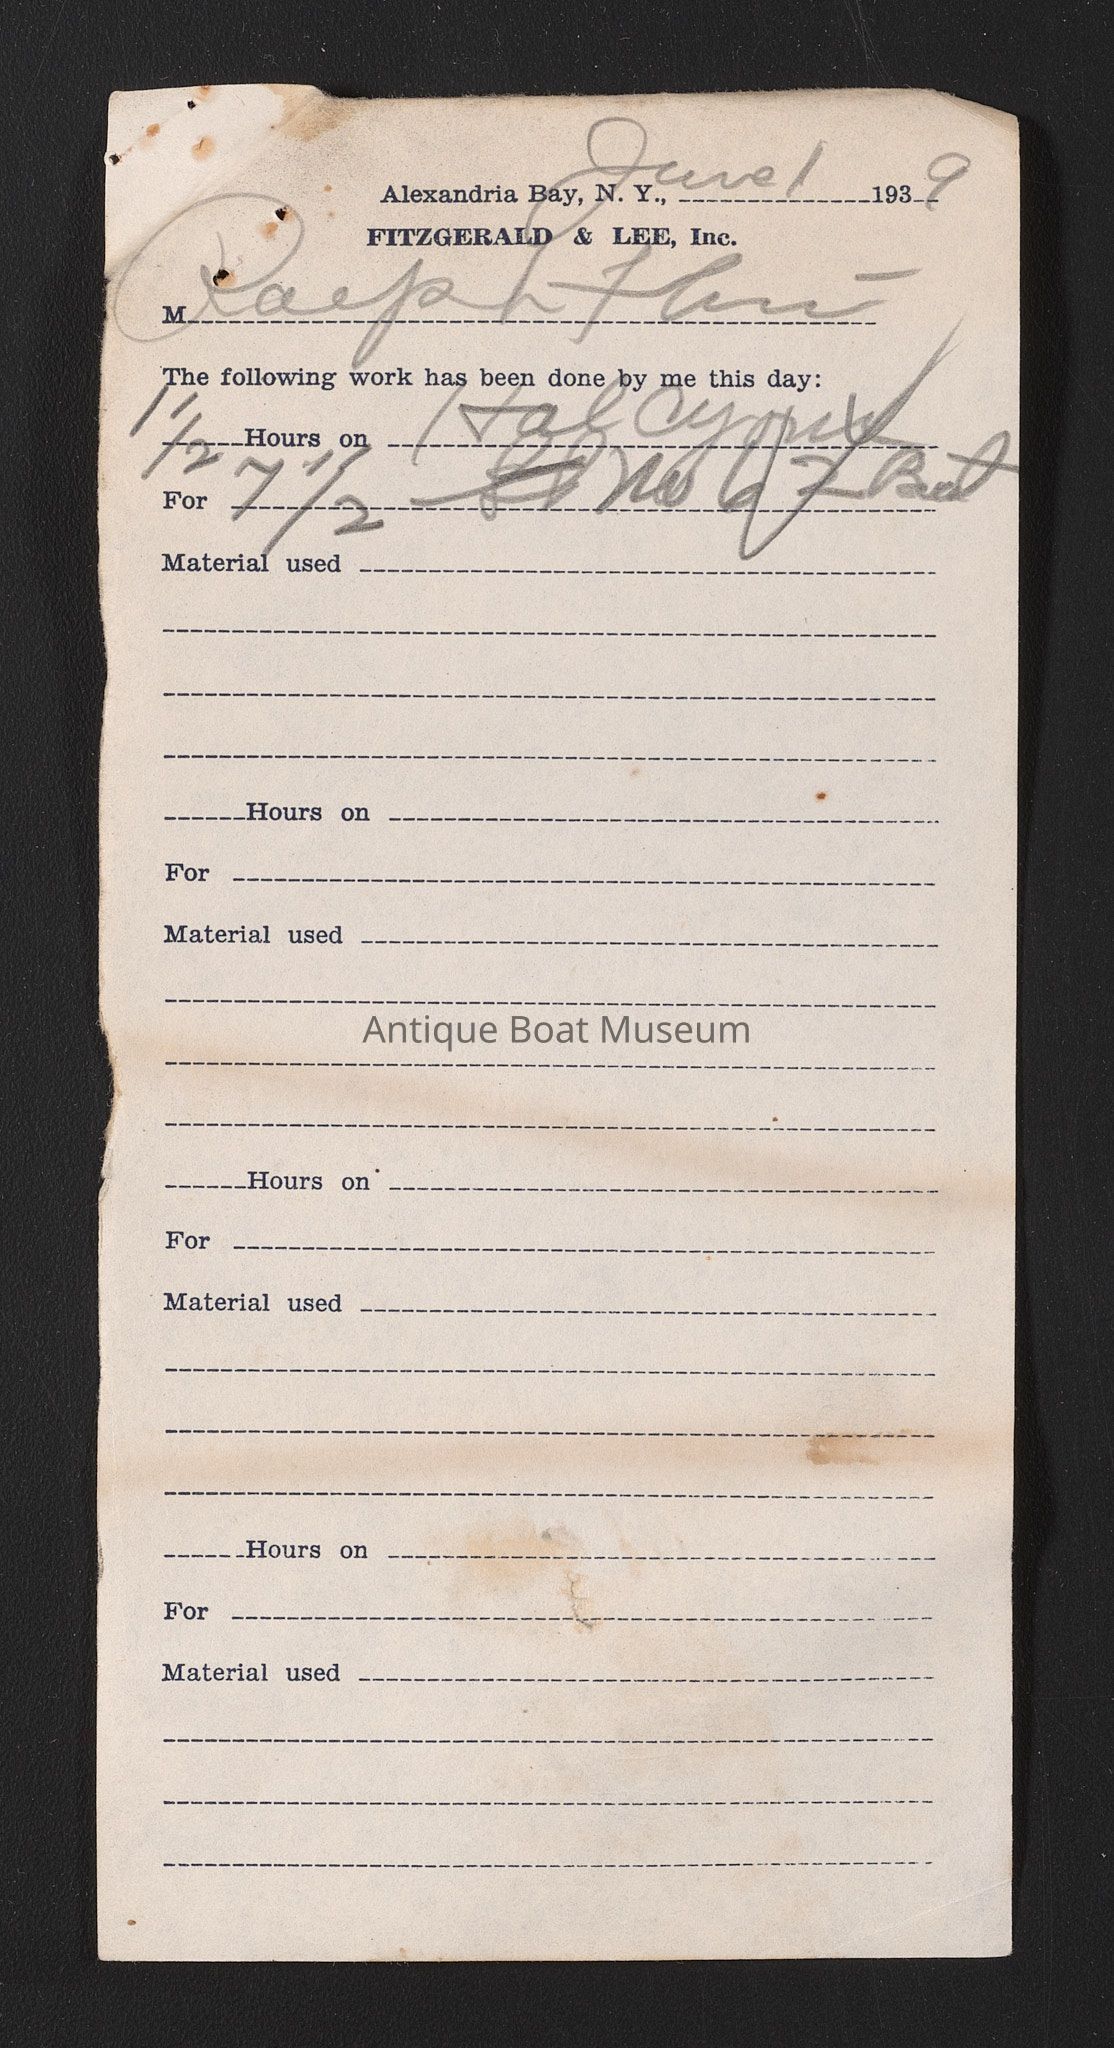 Alexandria Bay, N. Y., June 1 1939
FITZGERALD & LEE, Inc.
M Ralph
The following work has been done by me this day:
1 1/2 Hours on Halcyon
For 7 1/2 No 2 Boat
Material used
Hours on
For
Material used
Antique Boat Museum
Hours on
For
Material used
Hours on
For
Material used